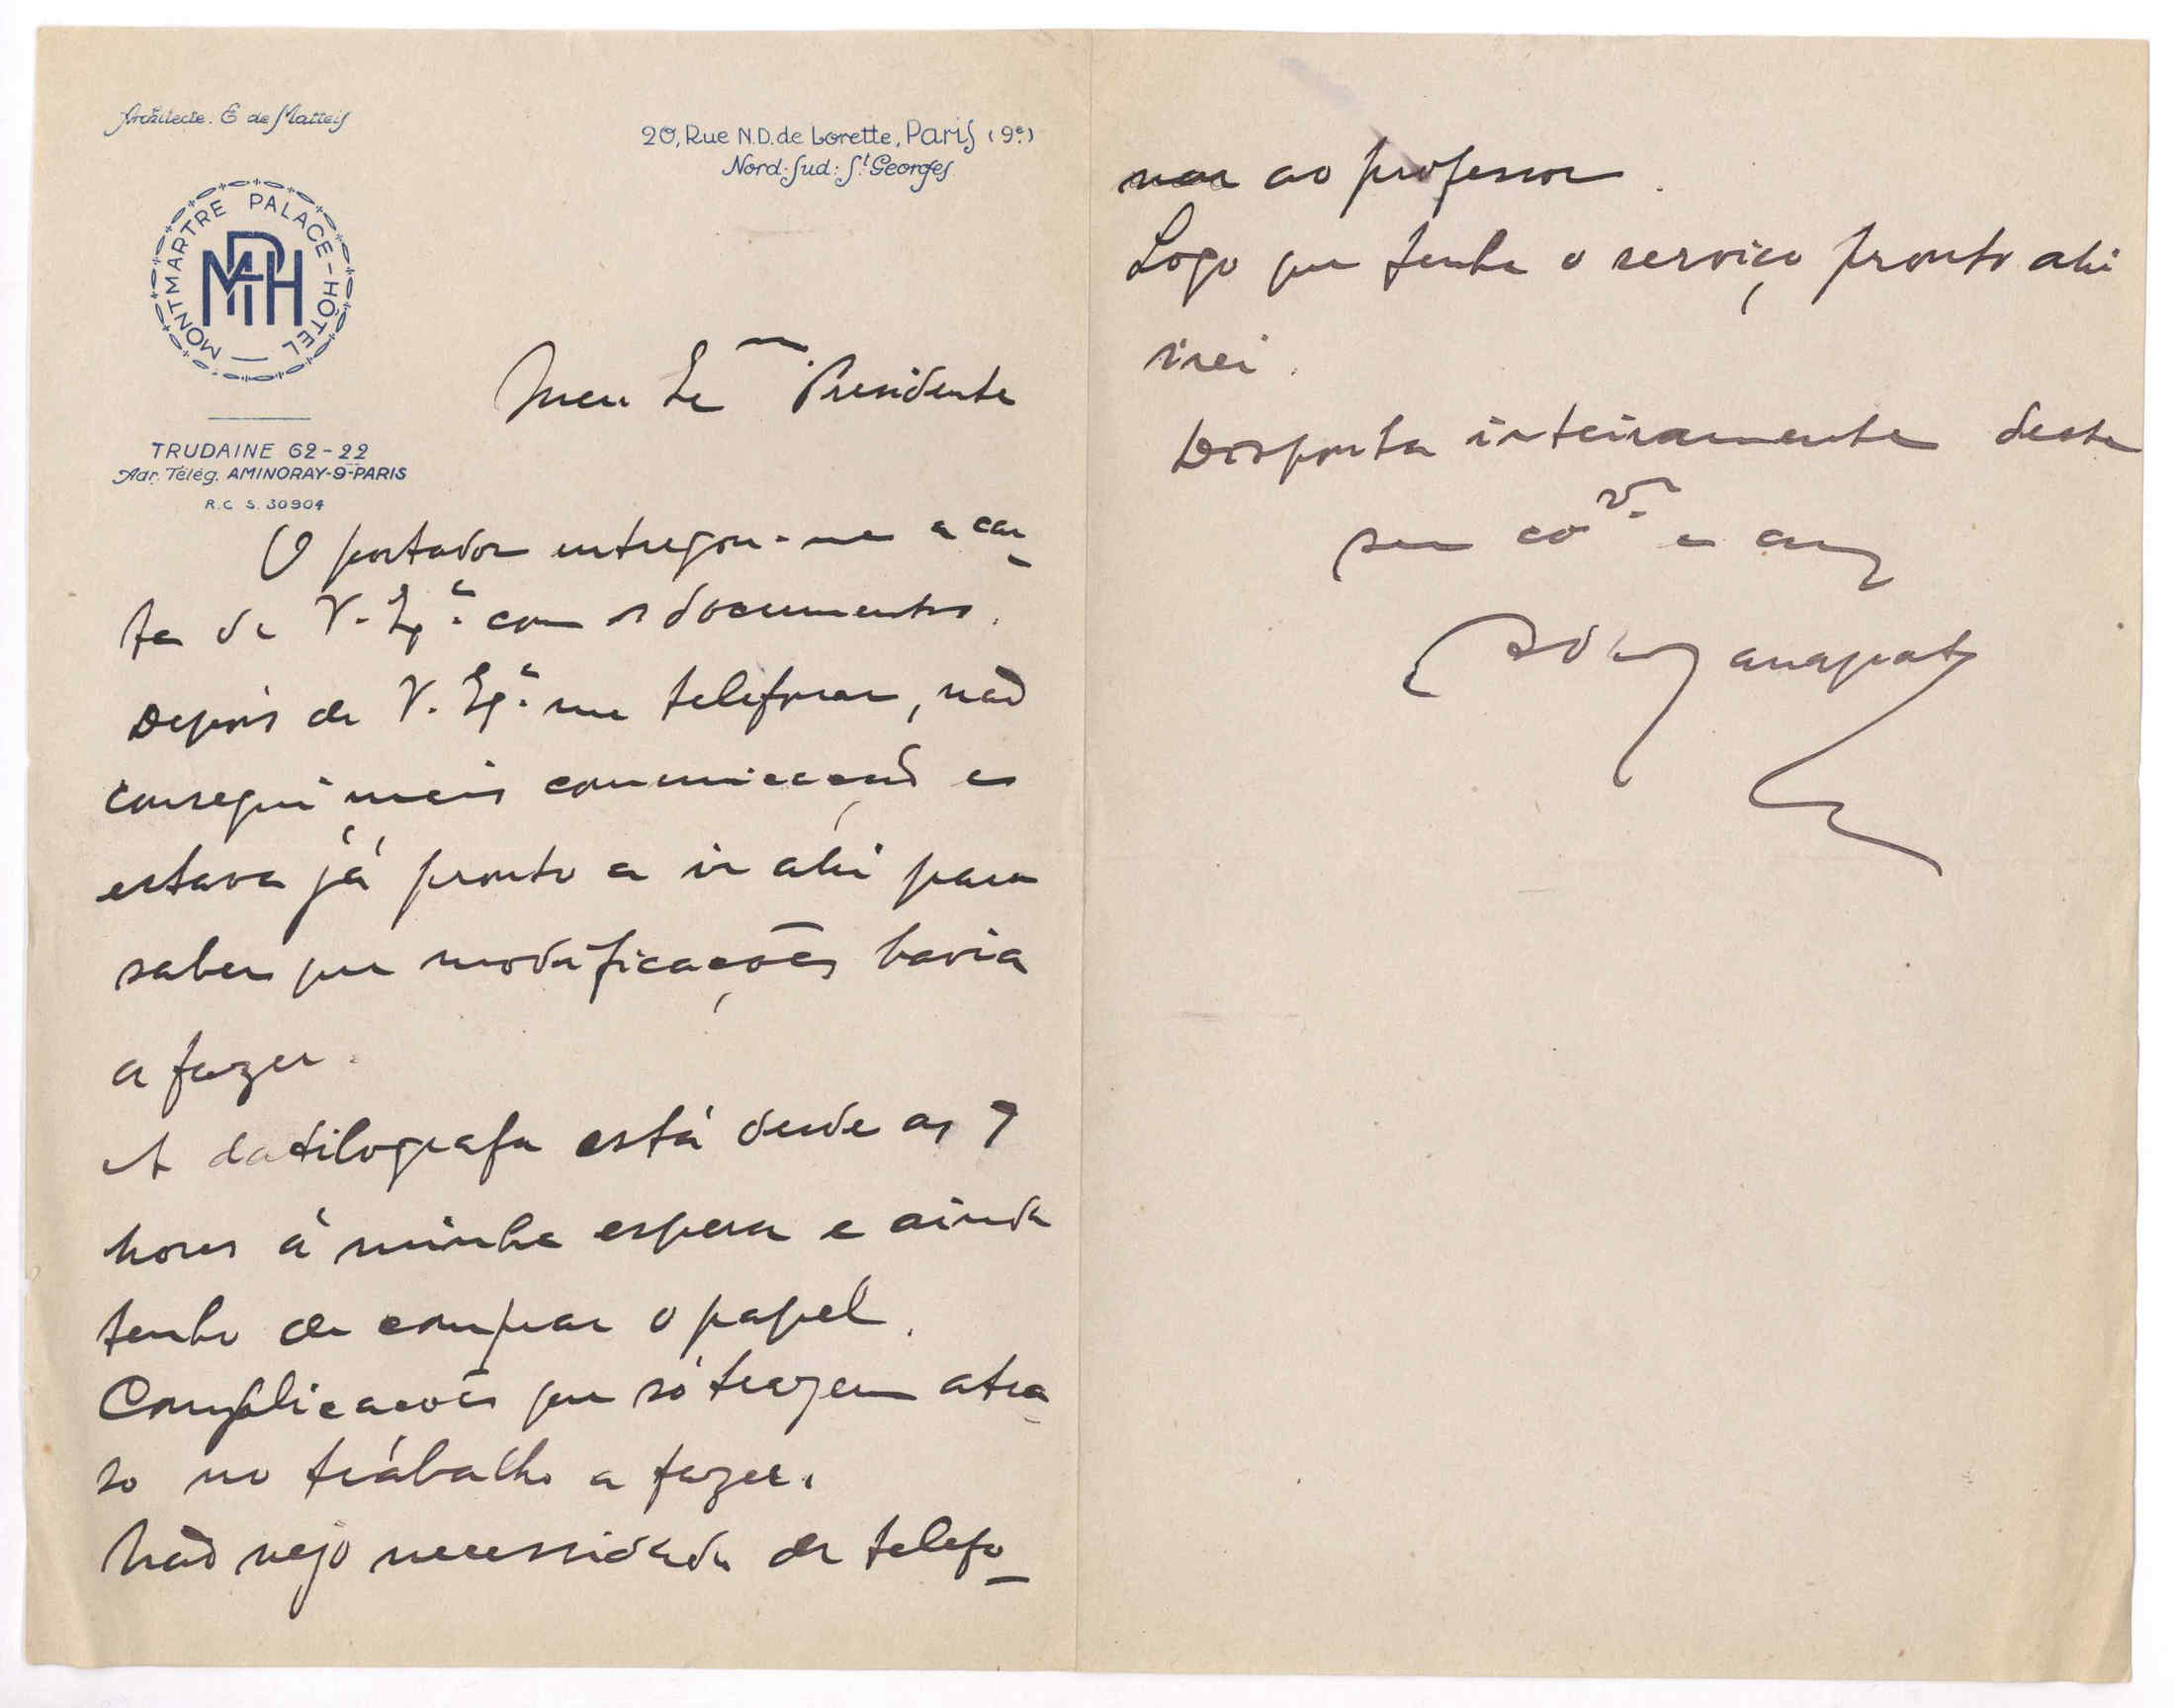 Architecte. E de Matteis
20, Rue N.D. de Lorette, Paris (9e)
Nord-Sud: St Georges
MONTMARTRE PALACE-HÔTEL
MPH
TRUDAINE 62-22
Adr. Télég. AMINORAY-9-PARIS
R.C. S. 30904
Meu Presidente
O portador entregou-me a car
ta de V. Exª com os documentos.
Depois de V. Exª me telefonar, não
consegui mais comunicação e
estava já pronto a ir ahi para
saber que modificações havia
a fazer.
A datilografa está desde as 7
horas á minha espera e ainda
tenho de comprar o papel.
Complicacões que só trazem atra
so no trabalho a fazer.
Não vejo necessidade de telefo-
nar ao professor.
Logo que tenha o serviço pronto ahi
irei.
Disponha inteiramente deste
seu co e